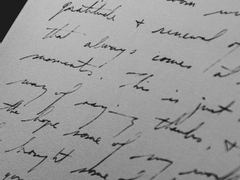 gratitude & renewal of
That always comes (at
moments. This is just
way of saying thanks, &
the hope some of my
bought some